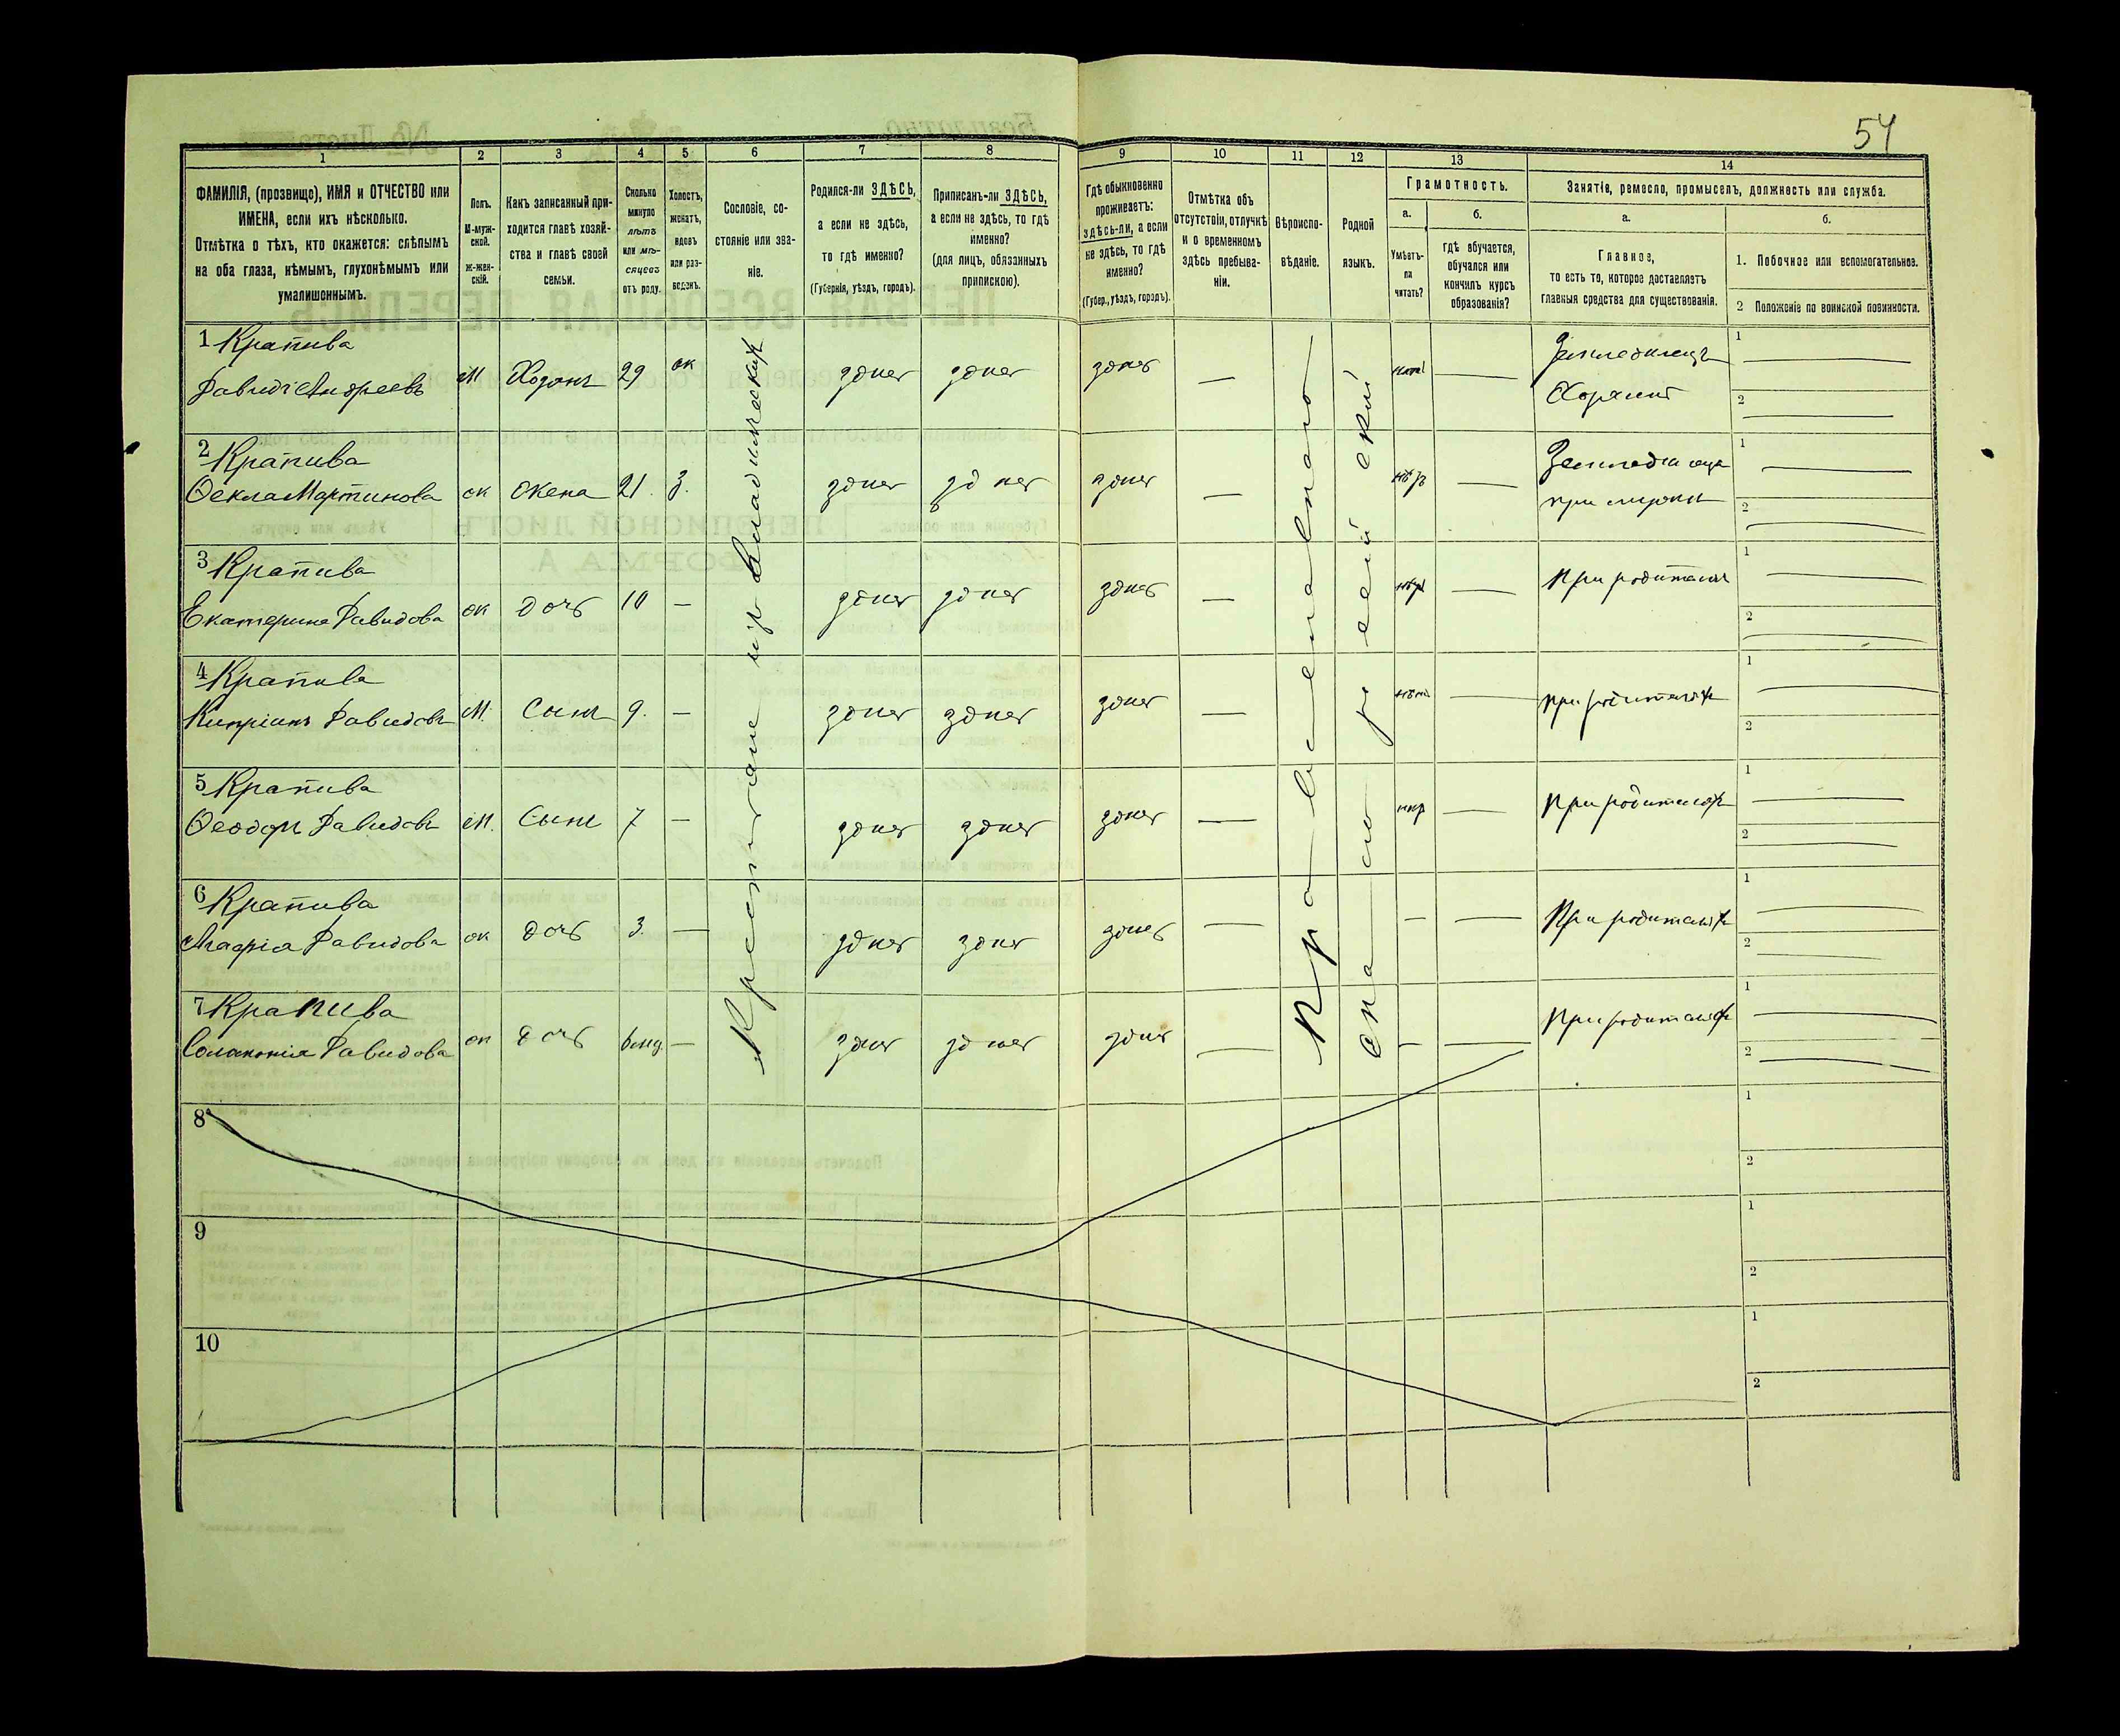 54
1
2
3
4
5
6
7
8
9
10
11
12
13
14
ФАМИЛІЯ, (прозвище), ИМЯ и ОТЧЕСТВО или
ИМЕНА, если ихъ нѣсколько.
Отмѣтка о тѣхъ, кто окажется: слѣпымъ
на оба глаза, нѣмымъ, глухонѣмымъ или
умалишоннымъ.
Полъ.
М-муж-
ской.
Ж-жен-
скій.
Какъ записанный при-
ходится главѣ хозяй-
ства и главѣ своей
семьи.
Сколько
минуло
лѣтъ
или мѣ-
сяцевъ
отъ роду.
Холостъ,
женатъ,
вдовъ
или раз-
веденъ.
Сословіе, со-
стояніе или зва-
ніе.
Родился-ли ЗДѢСЬ,
а если не здѣсь,
то гдѣ именно?
(Губернія, уѣздъ, городъ).
Приписанъ-ли ЗДѢСЬ,
а если не здѣсь, то гдѣ
именно?
(для лицъ, обязанныхъ
припискою).
Гдѣ обыкновенно
проживаетъ:
здѣсь-ли, а если
не здѣсь, то гдѣ
именно?
(Губер., уѣздъ, городъ).
Отмѣтка объ
отсутствіи, отлучкѣ
и о временномъ
здѣсь пребыва-
ніи.
Вѣроиспо-
вѣданіе.
Родной
языкъ.
Грамотность.
а.
Умѣетъ-
ли
читать?
б.
гдѣ обучается,
обучался или
кончилъ курсъ
образованія?
Занятіе, ремесло, промыселъ, должность или служба.
а.
Главное,
то есть то, которое доставляетъ
главныя средства для существованія.
б.
1. Побочное или вспомогательное.
2 Положеніе по воинской повинности.
1 Крапива
Давидъ Андреевъ М Хозяинъ 29 ж здѣсь здѣсь здѣсь — — Земледѣлецъ
Хозяинъ
2 Крапива
Ѳекла Мартинова ж Жена 21. З. здѣсь здѣсь здѣсь — —
3 Крапива
Екатерина Давидова ж дочь 10 — здѣсь здѣсь здѣсь — — При родителяхъ
4 Крапива
Кипріанъ Давидовъ М. Сынъ 9. — здѣсь здѣсь здѣсь — — При родителяхъ
5 Крапива
Ѳеодоръ Давидовъ М. Сынъ 7 — здѣсь здѣсь здѣсь — — При родителяхъ
6 Крапива
Давидова ж дочь 3. — здѣсь здѣсь здѣсь — — — При родителяхъ
7 Крапива
Соломонія Давидова ж дочь здѣсь здѣсь здѣсь — — — При родителяхъ
Крестьяне изъ
Православного
русскій
8
9
10